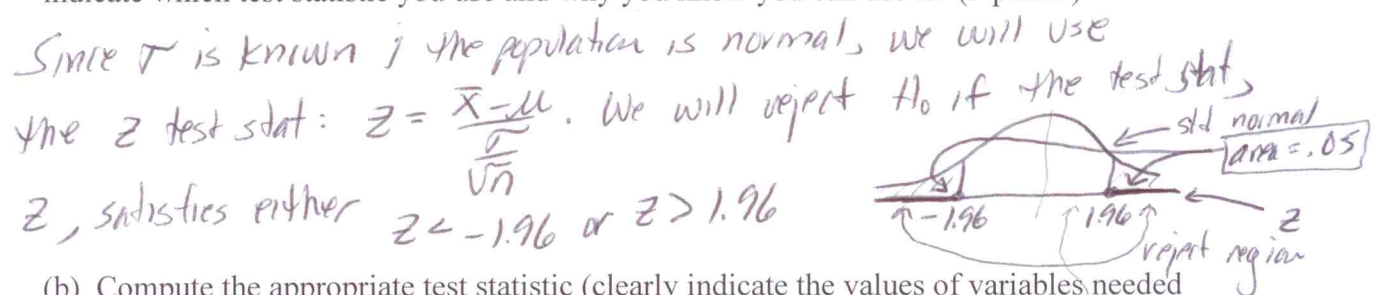 Since σ is known ; the population is normal, we will use
the z test stat: z = (x̄-μ)/(σ/√n). We will reject H₀ if the test stat,
z, satisfies either z < -1.96 or z > 1.96
std normal
area = .05
-1.96
1.96
z
reject region
(b) Compute the appropriate test statistic (clearly indicate the values of variables needed